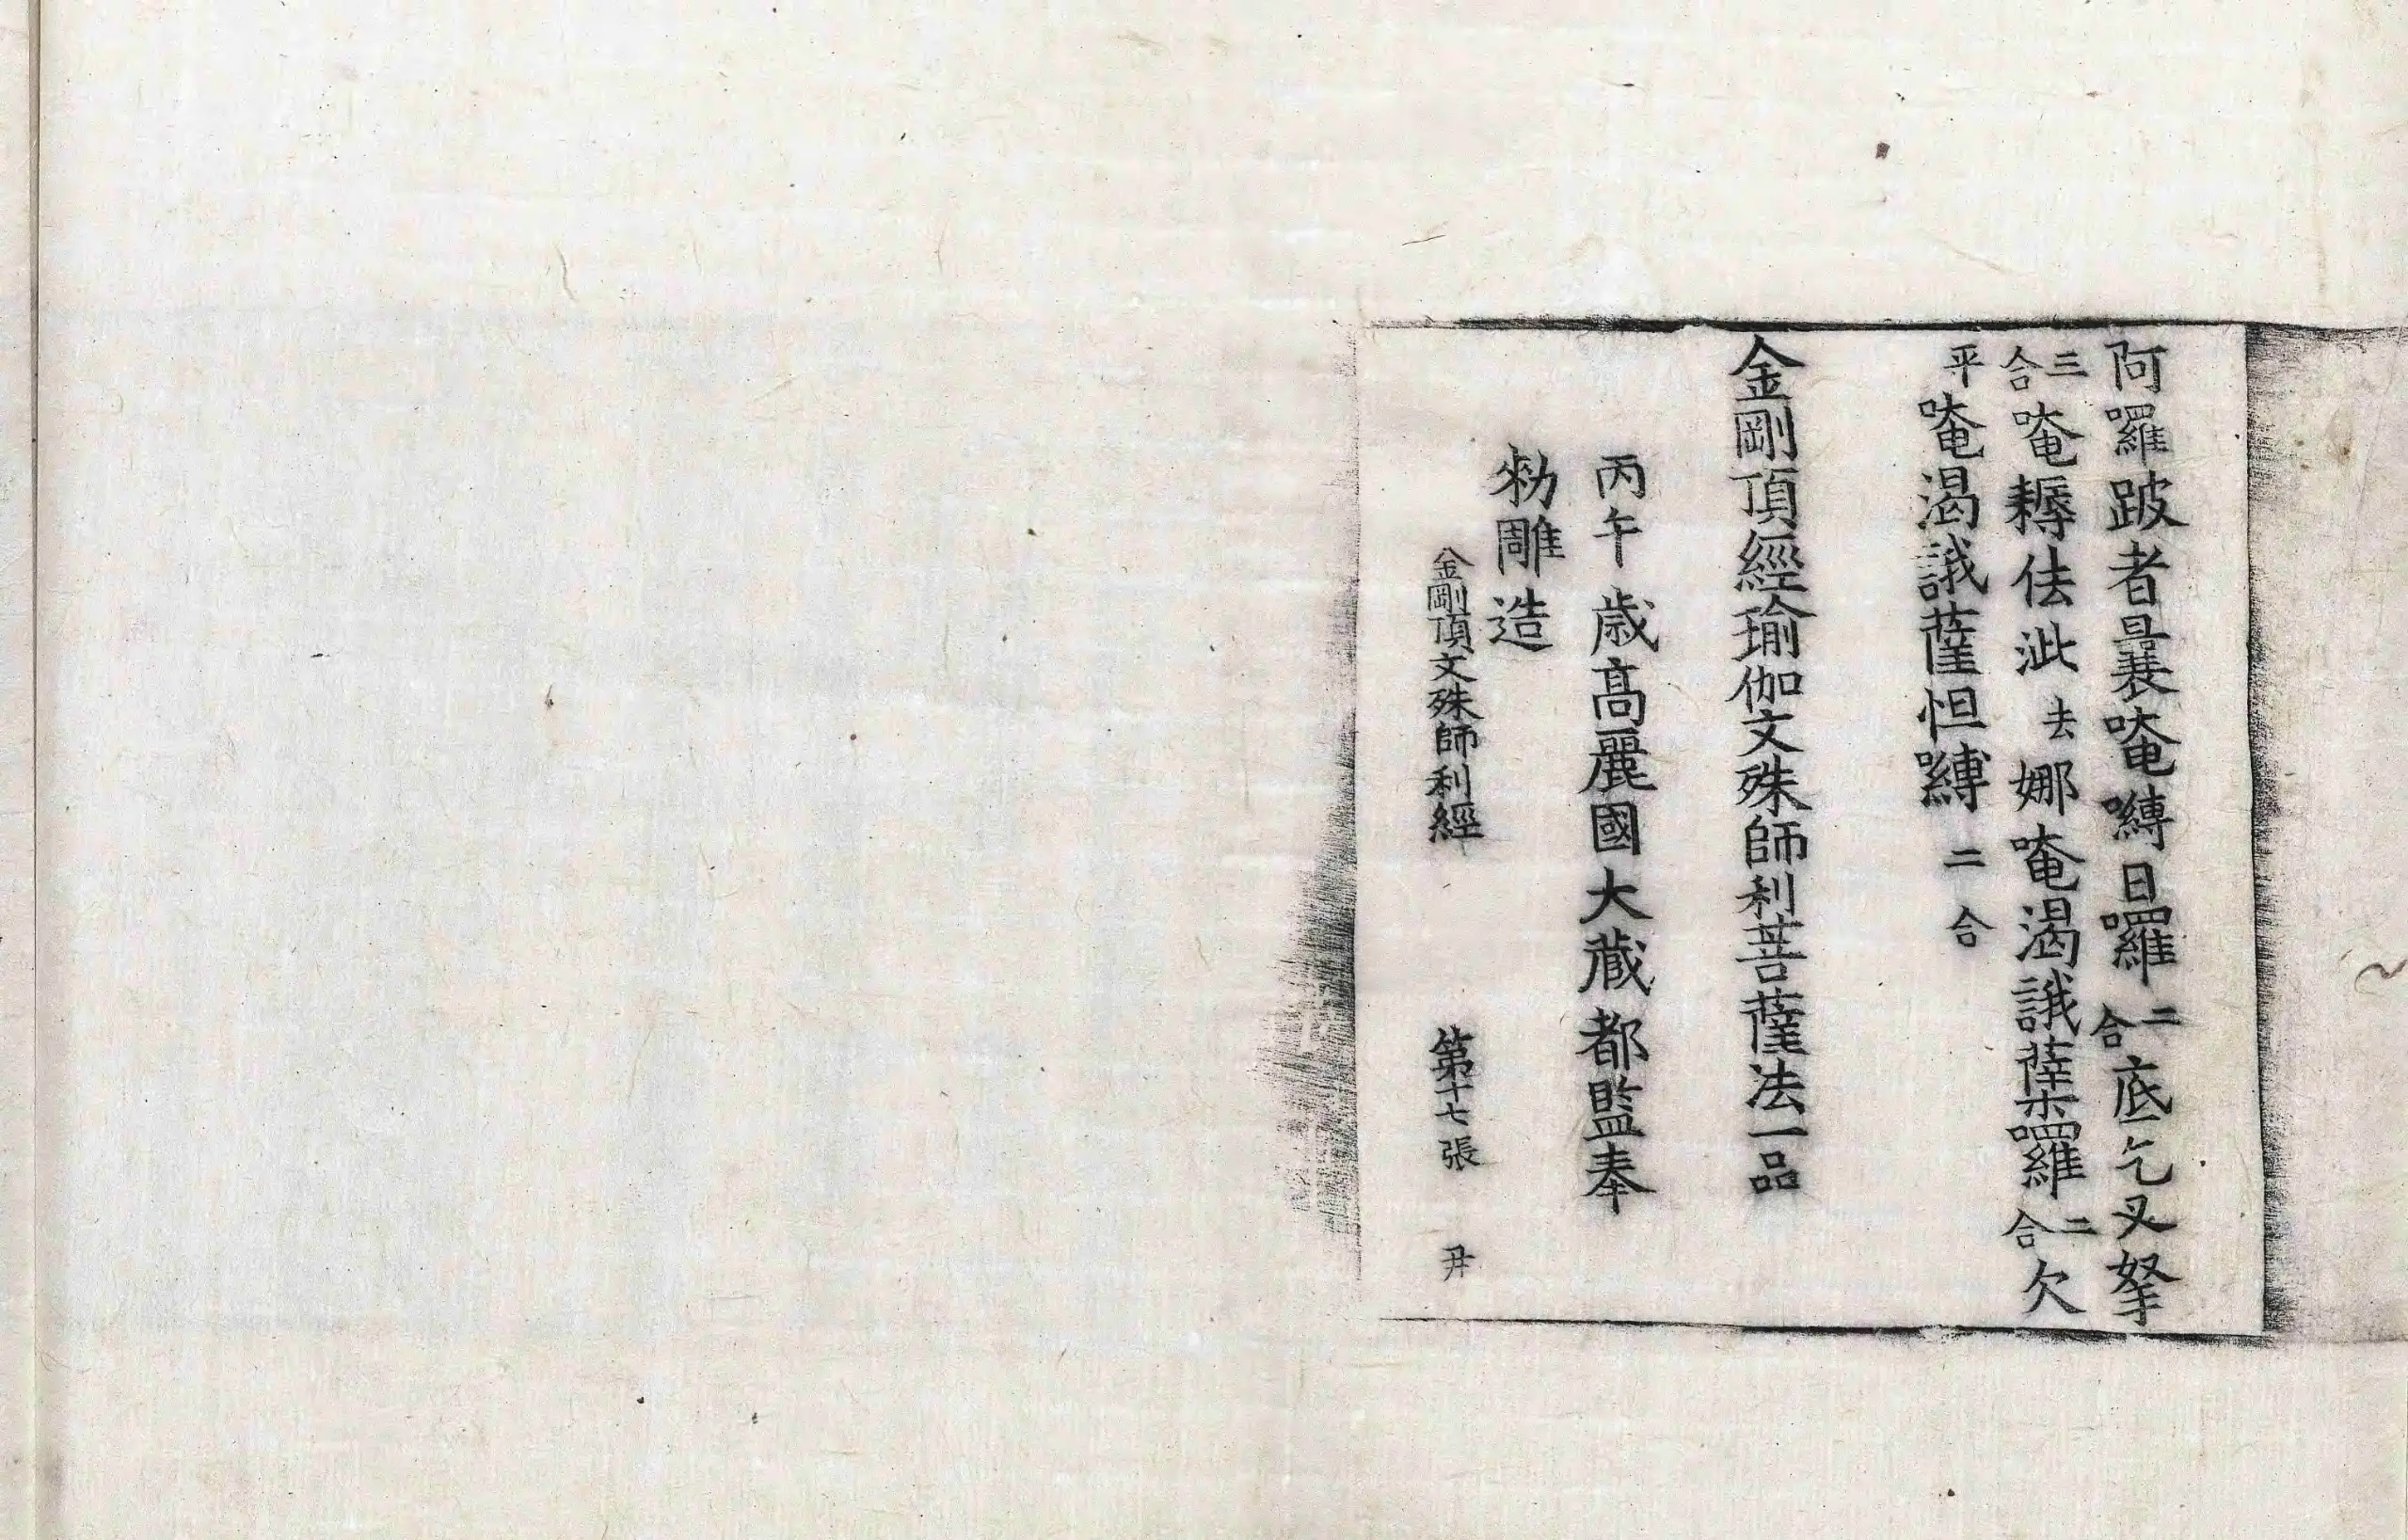 阿囉跛者曩唵嚩日囉二合底乞叉拏
三合唵耨佉泚去娜唵渴誐薩怛囉二合欠
平唵渴誐薩怛嚩二合
金剛頂經瑜伽文殊師利菩薩法一品
丙午歲高麗國大藏都監奉
勑雕造
金剛頂文殊師利經 第十七張 丼